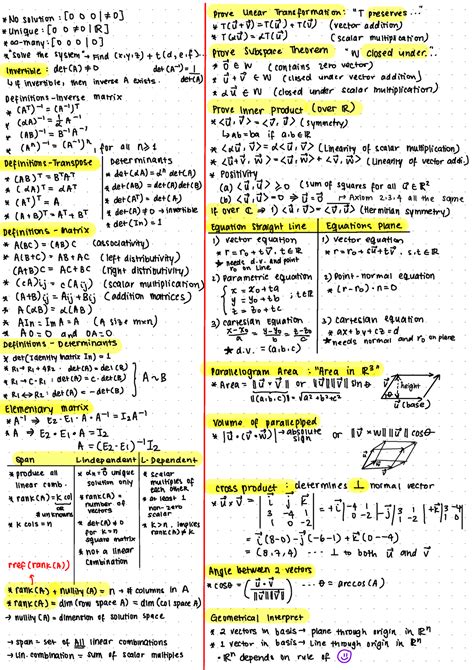 * No solution : [0 0 0 | ≠0]
* Unique : [0 0 ≠0 | ℝ]
* ∞-many : [0 0 0 | 0]
* "Solve the system" → Find (x,y,z) + t(d,e,f)
Invertible : det(A) ≠ 0 det(A⁻¹) = 1/det(A)
↳ if invertible, then inverse A exists.
Definitions - Inverse matrix
* (Aᵀ)⁻¹ = (A⁻¹)ᵀ
* (αA)⁻¹ = 1/α A⁻¹
* (AB)⁻¹ = B⁻¹A⁻¹
* (Aⁿ)⁻¹ = (A⁻¹)ⁿ, for all n≥1
Definitions - Transpose
* (AB)ᵀ = BᵀAᵀ
* (αA)ᵀ = αAᵀ
* (Aᵀ)ᵀ = A
* (A+B)ᵀ = Aᵀ + Bᵀ
Determinants
* det(αA) = αⁿ det(A)
* det(AB) = det(A) det(B)
* det(Aᵀ) = det(A)
* det(A) ≠ 0 → invertible
* det(In) = 1
Definitions - Matrix
* A(BC) = (AB)C (associativity)
* A(B+C) = AB + AC (left distributivity)
(A+B)C = AC + BC (right distributivity)
* (cA)ij = c(Aij) (scalar multiplication)
* (A+B)ij = Aij + Bij (addition matrices)
* A(αB) = α(AB)
* AIn = ImA = A (A size m×n)
* A0 = 0 and 0A = 0
Definitions - Determinants
* det(Identity matrix In) = 1
* R1 → R1 + 4R2 : det(A) = det(B)
* R1 → C·R1 : det(A) = c·det(B)
* R1 ↔ R2 : det(A) = -det(B)
} A ~ B
Elementary matrix
* A⁻¹ → E2·E1·A·A⁻¹ = I2A⁻¹
* A → E2·E1·A = I2
A = (E2·E1)⁻¹ I2
Span
* produce all linear comb.
* rank(A) = k col or # unknowns
* k cols = n
L.Independent
* αn = 0 unique solution only
* rank(A) = number of vectors
* det(A) ≠ 0 for k=n square matrix
* not a linear combination
L-Dependent
* scalar multiples of each other
* at least 1 non-zero scalar
* k>n, implies rank(A) ≠ k
rref(rank(A))
* rank(A) + nullity(A) = n → # columns in A
* rank(A) = dim(row space A) = dim(col space A)
→ nullity(A) = dimension of solution space
→ span = set of All linear combinations
→ lin. combination = sum of scalar multiples
Prove Linear Transformation: "T preserves..."
* T(u⃗+v⃗) = T(u⃗) + T(v⃗) (vector addition)
* T(αu⃗) = αT(u⃗) (scalar multiplication)
Prove Subspace Theorem "W closed under..."
* 0⃗ ∈ W (contains zero vector)
* u⃗+v⃗ ∈ W (closed under vector addition)
* αu⃗ ∈ W (closed under scalar multiplication)
Prove Inner product (over ℝ)
* <u⃗,v⃗> = <v⃗,u⃗> (symmetry)
↳ ab = ba if a.b ∈ ℝ
* <αu⃗,v⃗> = α<u⃗,v⃗> (linearity of scalar multiplication)
* <u⃗+v⃗,w⃗> = <u⃗,w⃗> + <v⃗,w⃗> (linearity of vector addi.)
* Positivity
(a) <u⃗,u⃗> ≥ 0 (sum of squares for all u⃗ ∈ ℝ²
(b) <u⃗,u⃗> = 0 → u⃗ = 0⃗ → Axiom 2,3,4 all the same
If over ℂ ⇒ 1) <u⃗,v⃗> = <v⃗,u⃗> (Hermitian symmetry)
Equation Straight line
1) vector equation
* r = r0 + tv⃗, t∈ℝ
* needs d.v. and point r0 on line
2) Parametric equation
{ x = x0 + ta
y = y0 + tb ; t∈ℝ
z = z0 + tc
3) cartesian equation
x-x0/a = y-y0/b = z-z0/c
* d.v. = (a,b,c)
Equations Plane
1) vector equation
* r = r0 + su⃗ + tv⃗, s,t∈ℝ
2) Point-normal equation
* (r-r0)·n = 0
3) cartesian equation
* ax + by + cz = d
* needs normal and r0 on plane
Parallelogram Area : "Area in ℝ³"
* Area = ||u⃗ × v⃗|| or ||u⃗|| ||v⃗|| sin θ
||(a,b,c)|| = √a²+b²+c²
height
v⃗
u⃗ (base)
Volume of parallepiped
* |u⃗·(v⃗×w⃗)| → absolute sign or ||v⃗ × w|| ||u⃗|| cosθ
Cross product : determines ⊥ normal vector
* u⃗ × v⃗ = | i⃗ j⃗ k⃗ | 3 1 -2 | 1 4 0 |
= i⃗(8-0) - j⃗(-6-1) + k⃗(0--4)
= (8,7,4) ... ⊥ to both u⃗ and v⃗
Angle between 2 vectors
* cosθ = (u⃗·v⃗ / ||u⃗|| ||v⃗||) ... θ = arccos(A)
Geometrical Interpret
* 2 vectors in basis → plane through origin in ℝⁿ
* 1 vector in basis → line through origin in ℝⁿ
- ℝⁿ depends on rule of